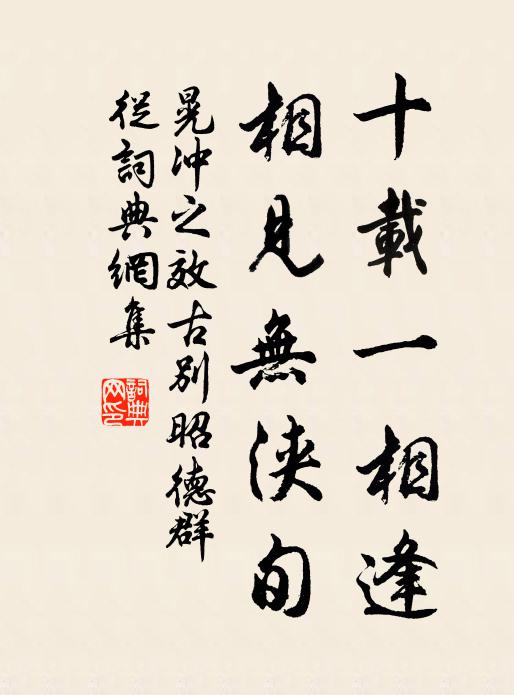 十載一相逢
相見無浹旬
晁沖之效古别昭德群
從詞典網集
詞典网印